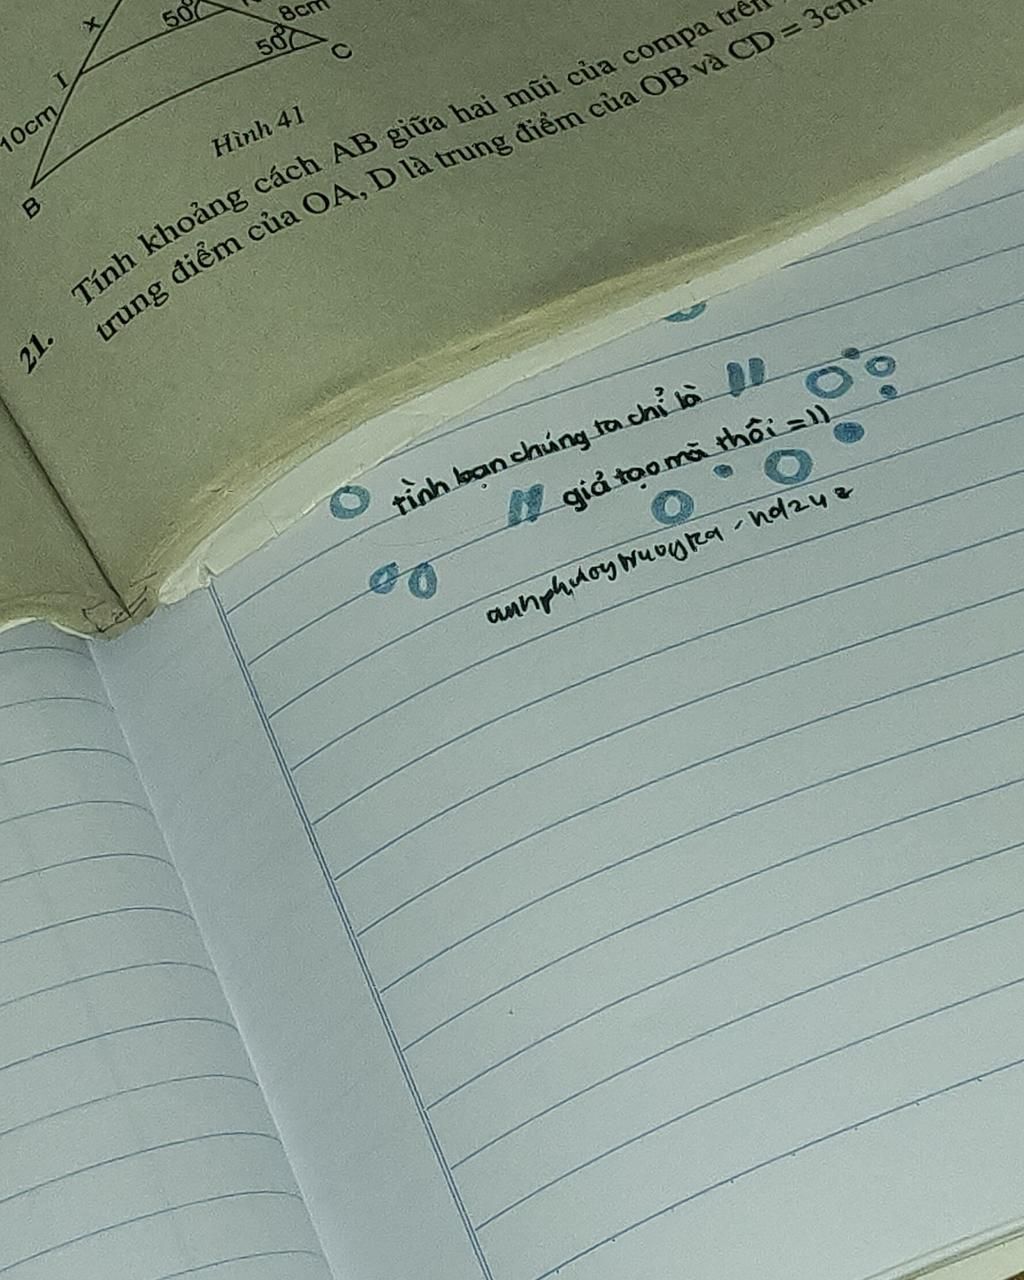 x
50°
8cm
I
50°
C
10cm
B
Hình 41
21. Tính khoảng cách AB giữa hai mũi của compa trên
trung điểm của OA, D là trung điểm của OB và CD = 3cm.
tình bạn chúng ta chỉ là "
" giả tạo mà thôi =))